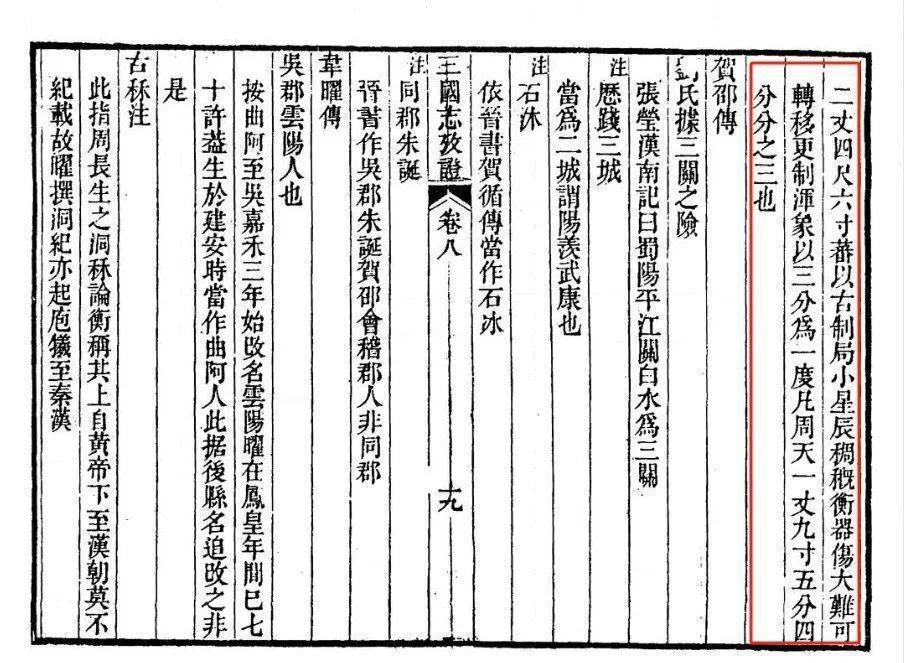 二丈四尺六寸蕃以古制局小星辰稠穊衡器傷大難可
轉移更制渾象以三分爲一度凡周天一丈九寸五分四
分分之三也
賀邵傳
劉氏據三關之險
張瑩漢南記曰蜀陽平江關白水爲三關
注歷踐三城
當爲二城謂陽羨武康也
注石沐
依晉書賀循傳當作石冰
三國志攷證
卷八
十九
注同郡朱誕
晉書作吳郡朱誕賀邵會稽郡人非同郡
韋曜傳
吳郡雲陽人也
按曲阿至吳嘉禾三年始改名雲陽曜在鳳皇年間已七
十許葢生於建安時當作曲阿人此据後縣名追改之非
是
古秝注
此指周長生之洞秝論衡稱其上自黃帝下至漢朝莫不
紀載故曜撰洞紀亦起庖犧至秦漢